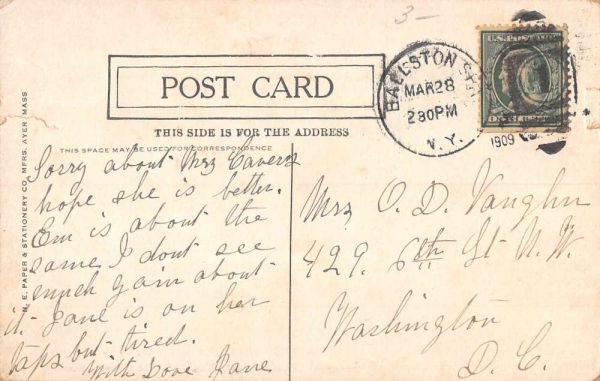 3-
POST CARD
THIS SIDE IS FOR THE ADDRESS
THIS SPACE MAY BE USED FOR CORRESPONDENCE
N. E. PAPER & STATIONERY CO. MFRS. AYER, MASS
BALLSTON SPA
MAR 28
230PM
N.Y.
1909
U.S. POSTAGE
Sorry about Mrs
hope she is better.
Em is about the
same I dont see
much gain about
it. Jane is on her
taps but tired.
With Love Jane
Mrs O. D. Vaughn
429. 6th St N.W.
Washington
D. C.